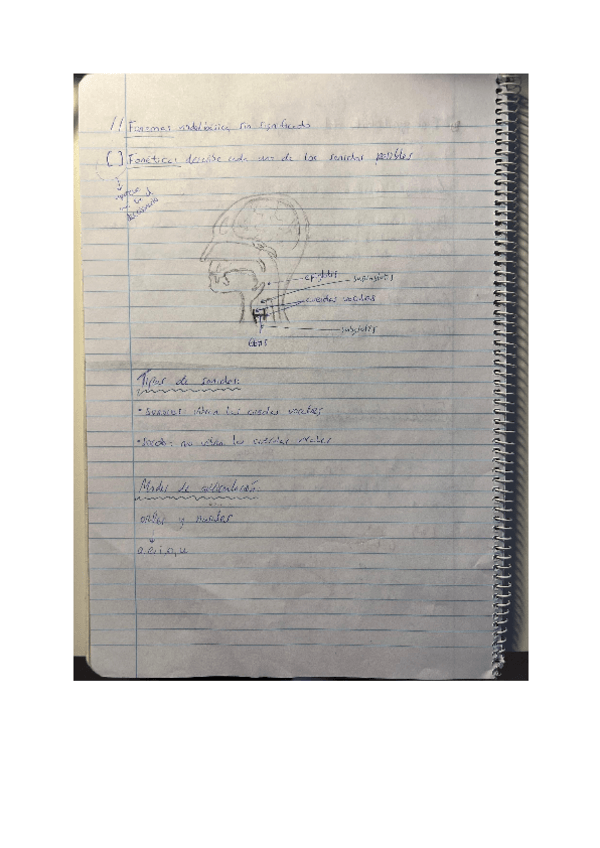 / / Fonemas sin significado
[ ] Fonética: describe cada uno de los sonidos posibles
epiglotis
cuerdas vocales
Tipos de sonidos:
• Sonoros: vibran las cuerdas vocales
• Sordos: no vibran las cuerdas vocales
Modos de articulación
orales y nasales
a, e, i, o, u